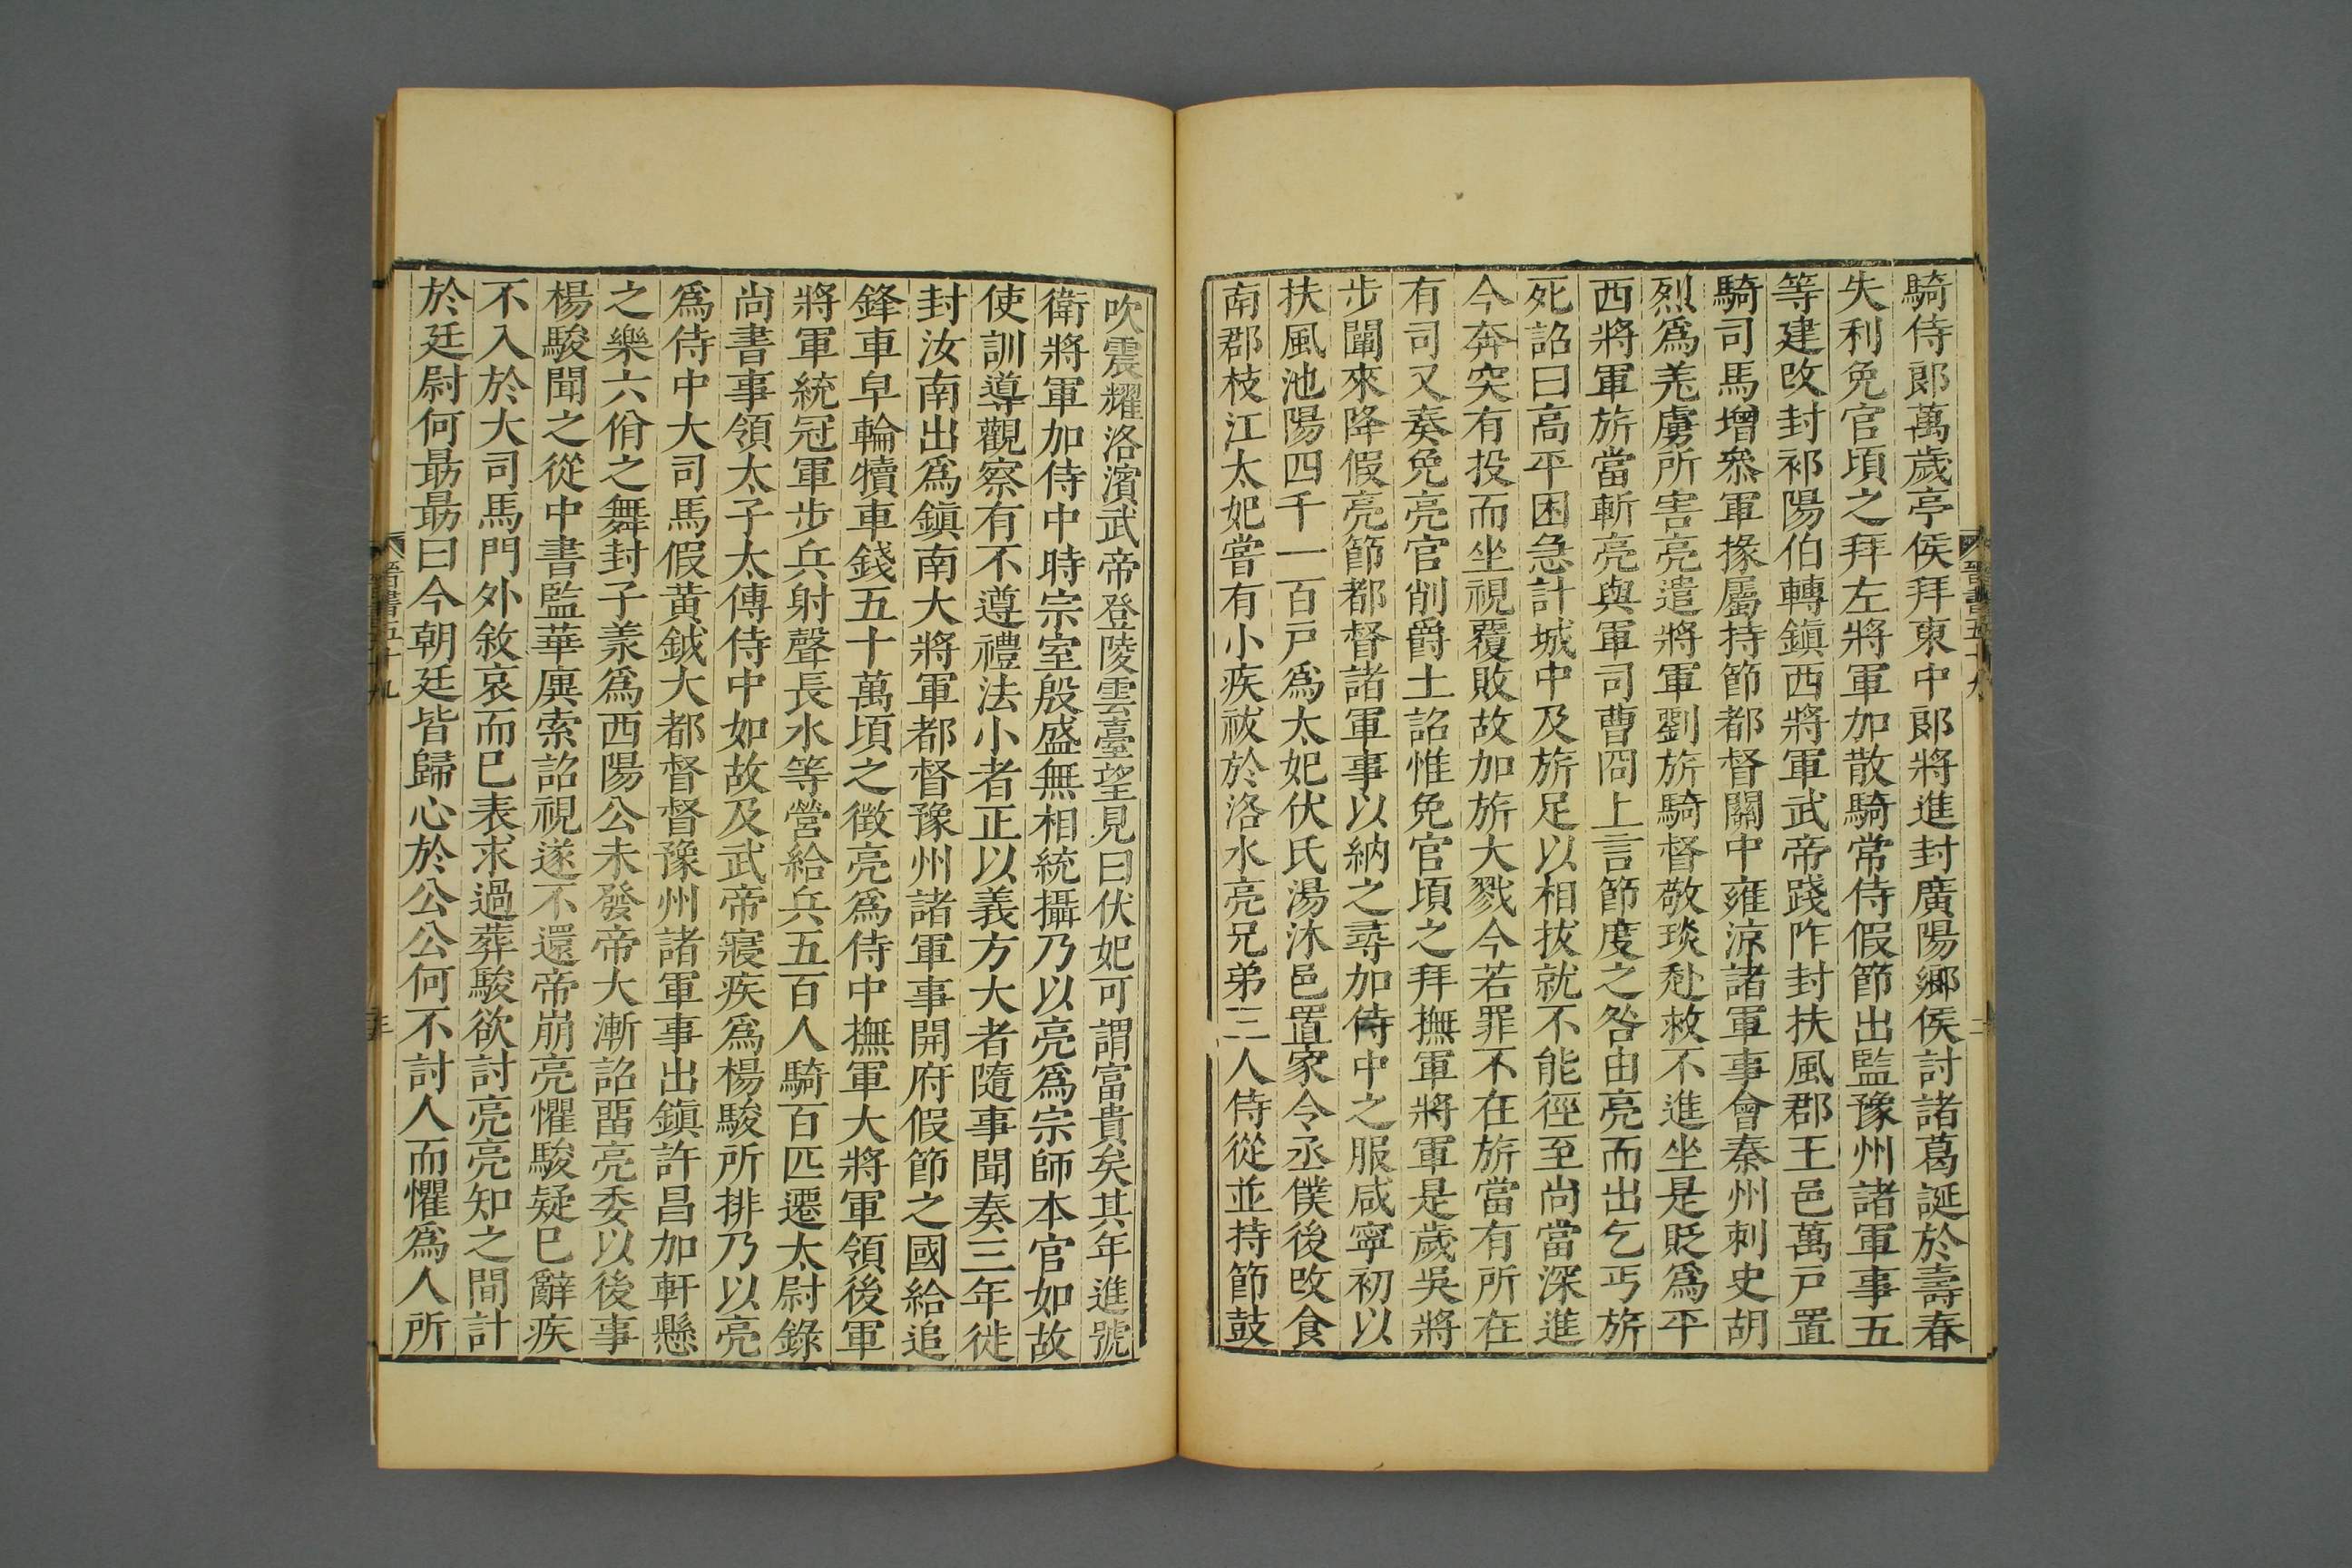 騎侍郎萬歲亭侯拜東中郎將進封廣陽鄉侯討諸葛誕於壽春
失利免官頃之拜左將軍加散騎常侍假節出監豫州諸軍事五
等建改封祁陽伯轉鎮西將軍武帝踐阼封扶風郡王邑萬戸置
騎司馬增叅軍掾屬持節都督關中雍涼諸軍事會秦州刺史胡
烈爲羌虜所害亮遣將軍劉旂騎督敬琰赴救不進坐是貶爲平
西將軍旂當斬亮與軍司曹冏上言節度之咎由亮而出乞丐旂
死詔曰高平困急計城中及旂足以相拔就不能徑至尚當深進
今奔突有投而坐視覆敗故加旂大戮今若罪不在旂當有所在
有司又奏免亮官削爵土詔惟免官頃之拜撫軍將軍是歲吳將
步闡來降假亮節都督諸軍事以納之尋加侍中之服咸寧初以
扶風池陽四千一百戸爲太妃伏氏湯沐邑置家令丞僕後改食
南郡枝江太妃嘗有小疾祓於洛水亮兄弟三人侍從並持節鼓
吹震耀洛濱武帝登陵雲臺望見曰伏妃可謂富貴矣其年進號
衛將軍加侍中時宗室殷盛無相統攝乃以亮爲宗師本官如故
使訓導觀察有不遵禮法小者正以義方大者隨事聞奏三年徙
封汝南出爲鎮南大將軍都督豫州諸軍事開府假節之國給追
鋒車皁輪犢車錢五十萬頃之徵亮爲侍中撫軍大將軍領後軍
將軍統冠軍步兵射聲長水等營給兵五百人騎百匹遷太尉錄
尚書事領太子太傅侍中如故及武帝寢疾爲楊駿所排乃以亮
爲侍中大司馬假黃鉞大都督督豫州諸軍事出鎮許昌加軒懸
之樂六佾之舞封子羕爲西陽公未發帝大漸詔畱亮委以後事
楊駿聞之從中書監華廙索詔視遂不還帝崩亮懼駿疑已辭疾
不入於大司馬門外敘哀而已表求過葬駿欲討亮亮知之間計
於廷尉何勗勗曰今朝廷皆歸心於公公何不討人而懼爲人所
晉書五十九